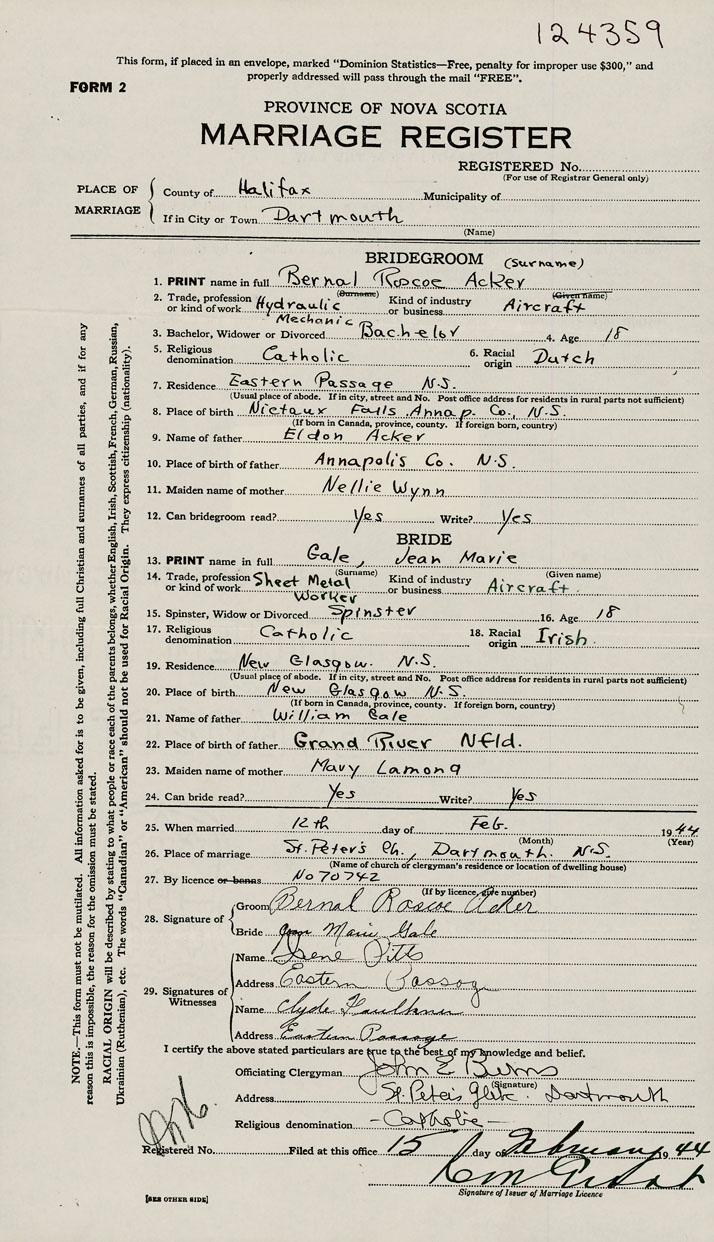 124359
This form, if placed in an envelope, marked "Dominion Statistics—Free, penalty for improper use $300," and
properly addressed will pass through the mail "FREE".
FORM 2
PROVINCE OF NOVA SCOTIA
MARRIAGE REGISTER
REGISTERED No.
(For use of Registrar General only)
PLACE OF MARRIAGE
County of Halifax Municipality of
If in City or Town Dartmouth
(Name)
BRIDEGROOM (Surname)
1. PRINT name in full Bernal Roscoe Acker
(Surname) (Given name)
2. Trade, profession or kind of work Hydraulic Mechanic Kind of industry or business Aircraft
3. Bachelor, Widower or Divorced Bachelor 4. Age 18
5. Religious denomination Catholic 6. Racial origin Dutch
7. Residence Eastern Passage N.S.
(Usual place of abode. If in city, street and No. Post office address for residents in rural parts not sufficient)
8. Place of birth Nictaux Falls Annap. Co., N.S.
(If born in Canada, province, county. If foreign born, country)
9. Name of father Eldon Acker
10. Place of birth of father Annapolis Co. N.S.
11. Maiden name of mother Nellie Wynn
12. Can bridegroom read? Yes Write? Yes
BRIDE
13. PRINT name in full Gale, Jean Marie
(Surname) (Given name)
14. Trade, profession or kind of work Sheet Metal Worker Kind of industry or business Aircraft.
15. Spinster, Widow or Divorced Spinster 16. Age 18
17. Religious denomination Catholic 18. Racial origin Irish.
19. Residence New Glasgow. N.S.
(Usual place of abode. If in city, street and No. Post office address for residents in rural parts not sufficient)
20. Place of birth New Glasgow N.S.
(If born in Canada, province, county. If foreign born, country)
21. Name of father William Gale
22. Place of birth of father Grand River Nfld.
23. Maiden name of mother Mary Lamond
24. Can bride read? Yes Write? Yes
25. When married 12th day of Feb. 1944
(Month) (Year)
26. Place of marriage St. Peter's Ch., Dartmouth. N.S.
(Name of church or clergyman's residence or location of dwelling house)
27. By licence or banns No 70742
(If by licence, give number)
28. Signature of
Groom Bernal Roscoe Acker
Bride Jean Marie Gale
29. Signatures of Witnesses
Name Irene Pitts
Address Eastern Passage
Name Clyde Faulkner
Address Eastern Passage
I certify the above stated particulars are true to the best of my knowledge and belief.
Officiating Clergyman John E Burns
(Signature)
Address St. Peter's Glebe. Dartmouth
Religious denomination -Catholic-
Registered No. Filed at this office 15 day of February 1944
Signature of Issuer of Marriage Licence
[SEE OTHER SIDE]
NOTE.—This form must not be mutilated. All information asked for is to be given, including full Christian and surnames of all parties, and if for any
reason this is impossible, the reason for the omission must be stated.
RACIAL ORIGIN will be described by stating to what people or race each of the parents belongs, whether English, Irish, Scottish, French, German, Russian,
Ukrainian (Ruthenian), etc. The words "Canadian" or "American" should not be used for Racial Origin. They express citizenship (nationality).